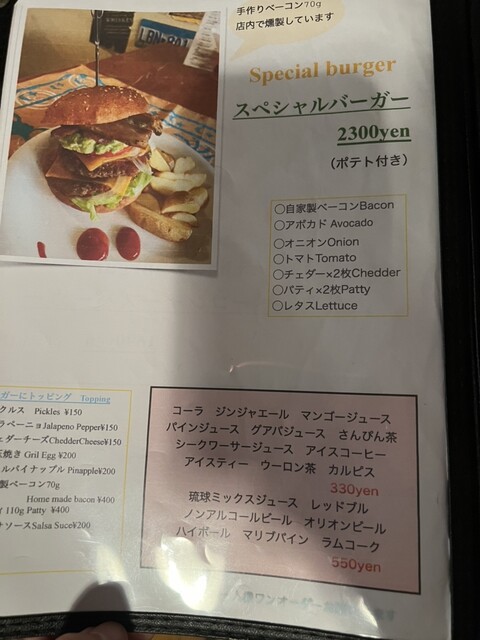 手作りベーコン70g
店内で燻製しています
Special burger
スペシャルバーガー
2300yen
(ポテト付き)
〇自家製ベーコンBacon
〇アボカド Avocado
〇オニオンOnion
〇トマトTomato
〇チェダー×2枚Chedder
〇パティ×2枚Patty
〇レタスLettuce
ガーにトッピング Topping
クルス Pickles ¥150
ラペーニョJalapeno Pepper¥150
ェダーチーズChedderCheese¥150
焼き Gril Egg ¥200
ルパイナップル Pinapple¥200
製ベーコン70g
Home made bacon ¥400
110g Patty ¥400
サソースSalsa Suce¥200
コーラ ジンジャエール マンゴージュース
パインジュース グアバジュース さんぴん茶
シークワーサージュース アイスコーヒー
アイスティー ウーロン茶 カルピス
330yen
琉球ミックスジュース レッドブル
ノンアルコールビール オリオンビール
ハイボール マリブパイン ラムコーク
550yen